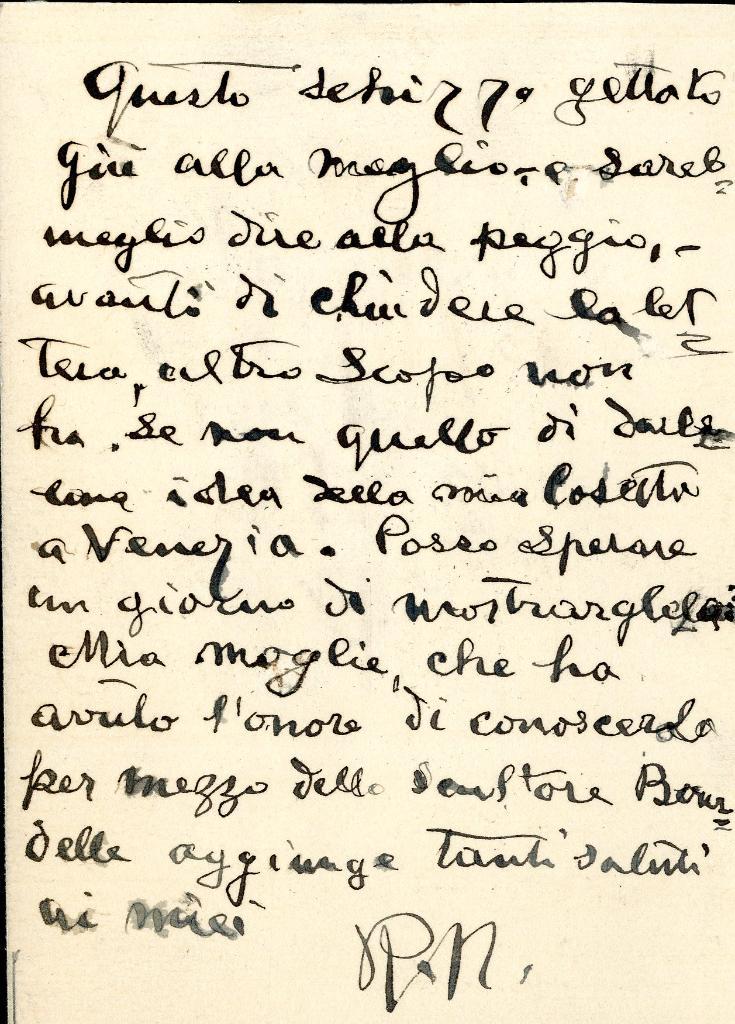 Questo schizzo gettato
giù alla meglio, - e sareb=
meglio dire alla peggio, -
avanti di chiudere la let=
tera, altro scopo non
ha, se non quello di darle
una idea della mia Casetta
a Venezia. Posso sperare
un giorno di mostrargliela
Mia moglie, che ha
avuto l'onore di conoscerla
per mezzo dello scultore Bour=
delle aggiunge tanti saluti
ai miei
R. N.